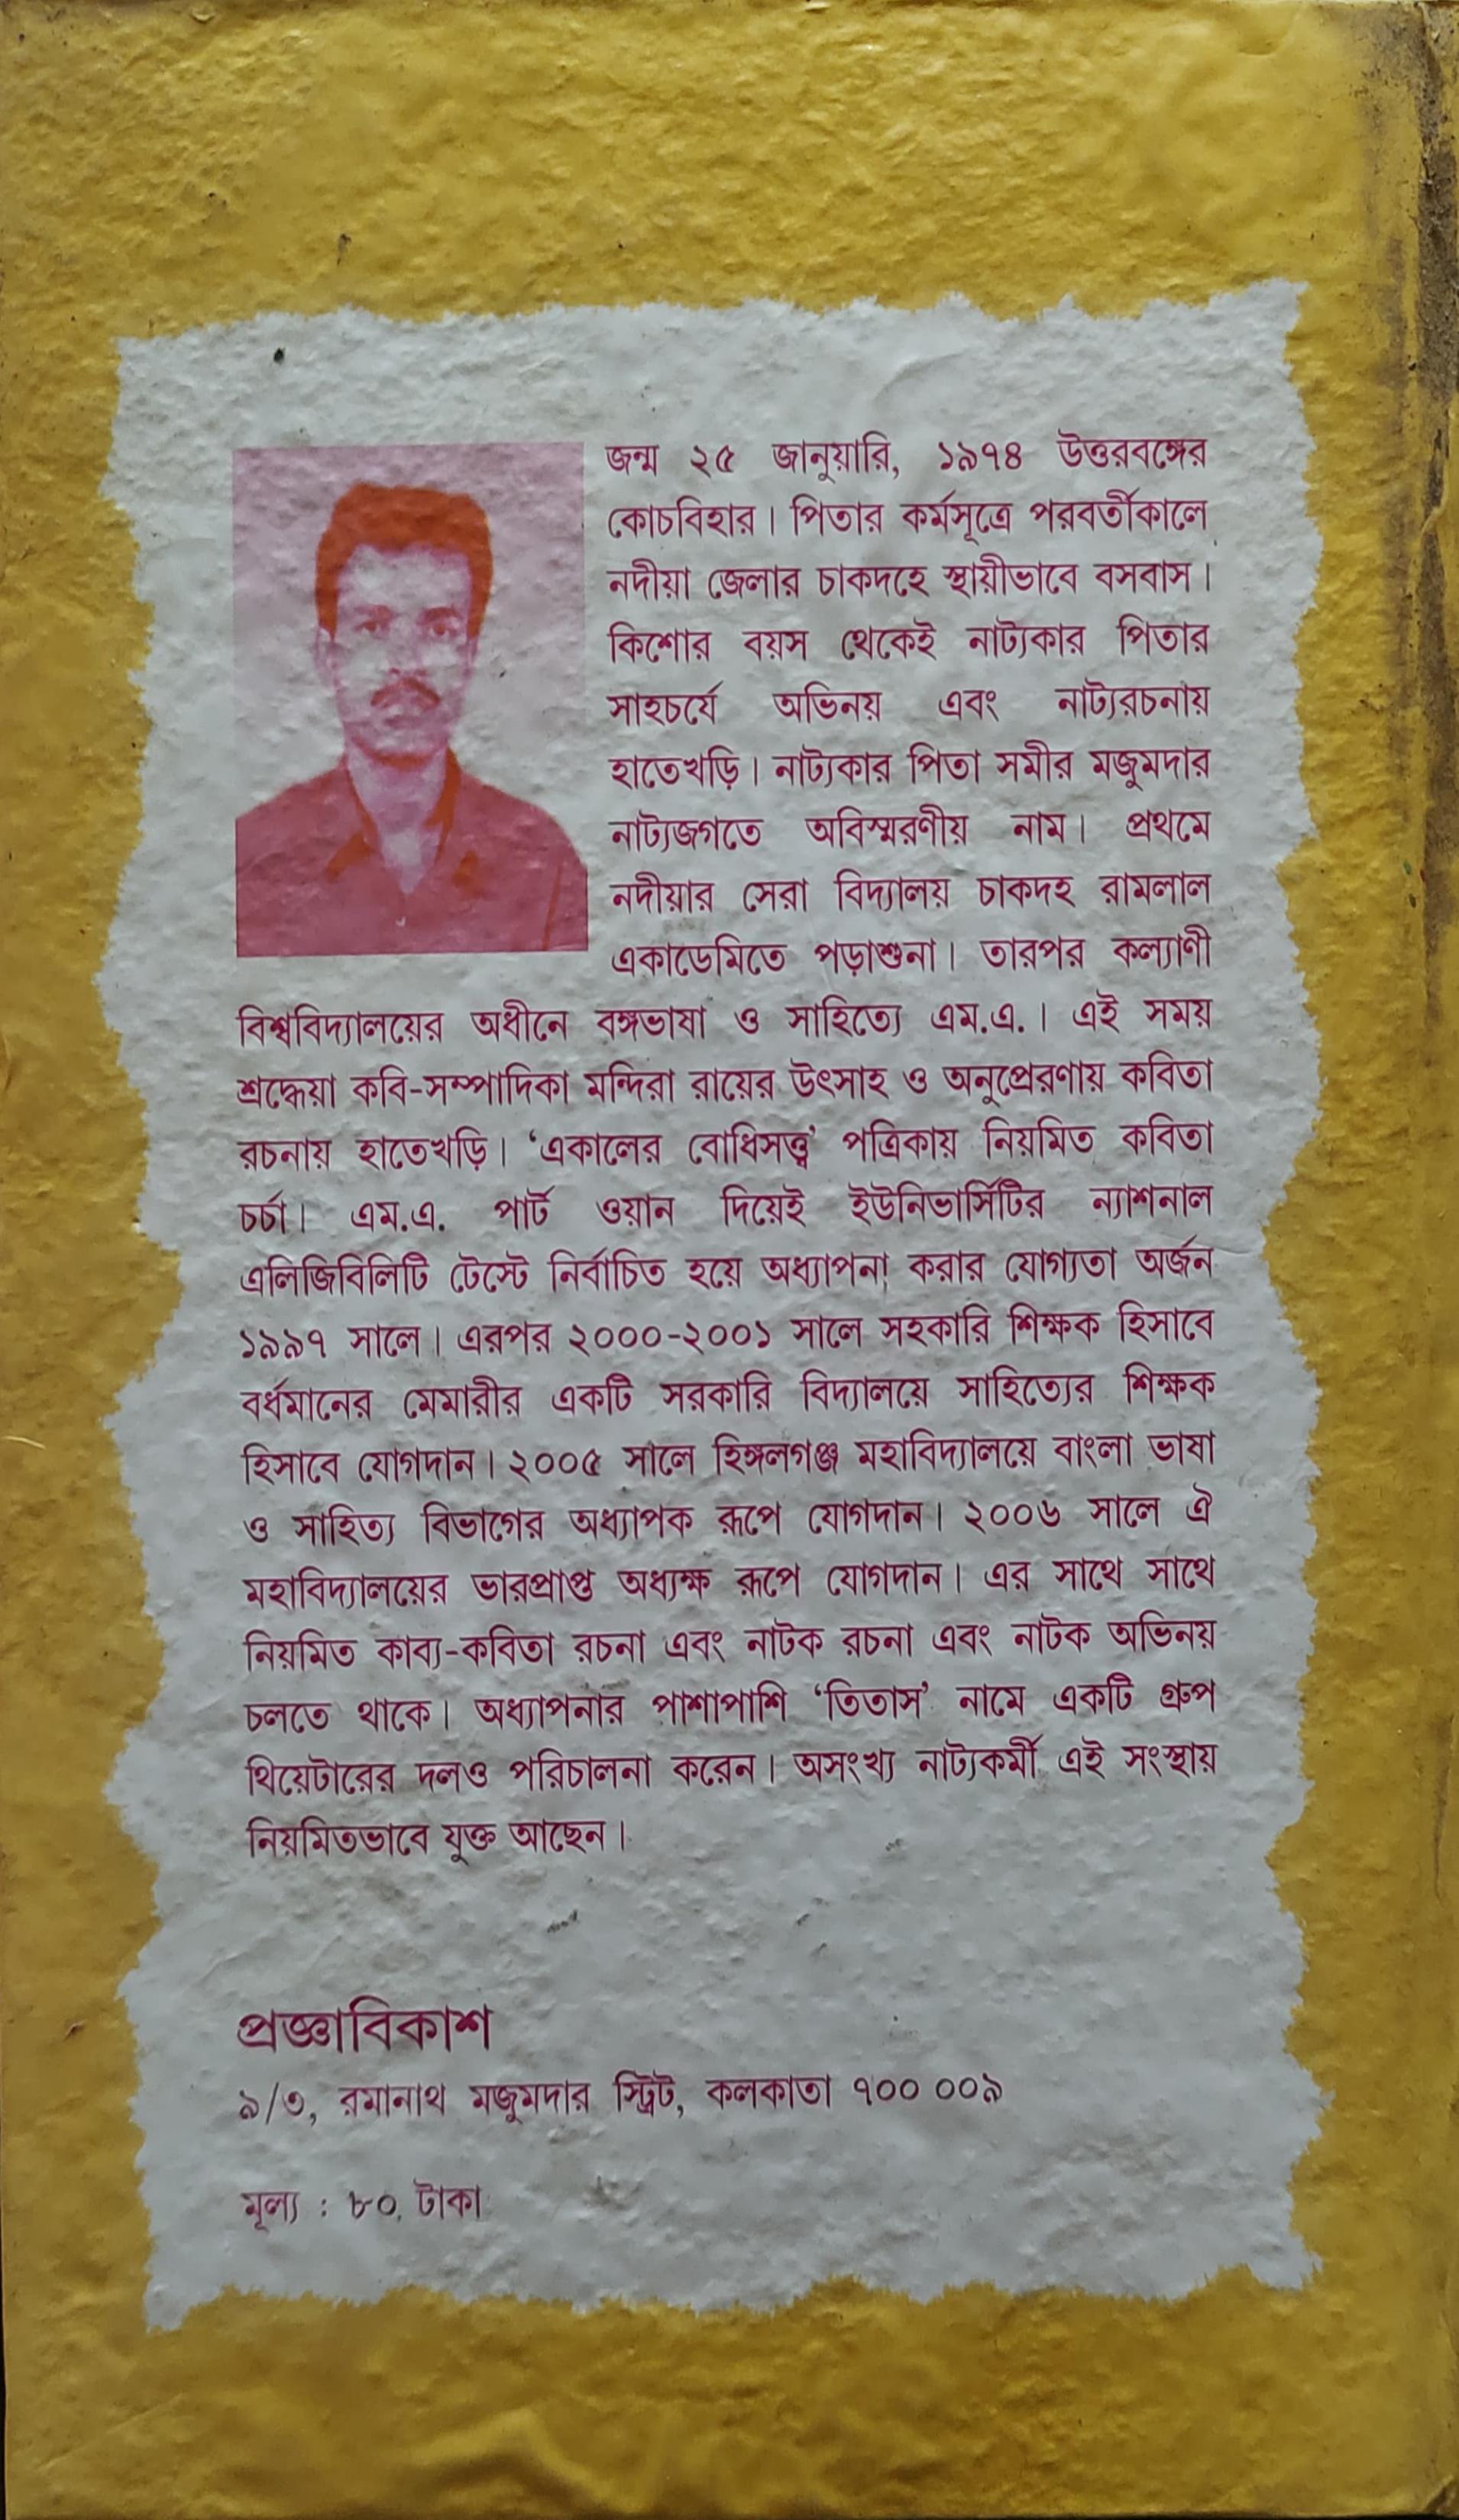 জন্ম ২৫ জানুয়ারি, ১৯৭৪ উত্তরবঙ্গের
কোচবিহার। পিতার কর্মসূত্রে পরবর্তীকালে
নদীয়া জেলার চাকদহে স্থায়ীভাবে বসবাস।
কিশোর বয়স থেকেই নাট্যকার পিতার
সাহচর্যে অভিনয় এবং নাট্যরচনায়
হাতেখড়ি। নাট্যকার পিতা সমীর মজুমদার
নাট্যজগতে অবিস্মরণীয় নাম। প্রথমে
নদীয়ার সেরা বিদ্যালয় চাকদহ রামলাল
একাডেমিতে পড়াশুনা। তারপর কল্যাণী
বিশ্ববিদ্যালয়ের অধীনে বঙ্গভাষা ও সাহিত্যে এম.এ.। এই সময়
শ্রদ্ধেয়া কবি-সম্পাদিকা মন্দিরা রায়ের উৎসাহ ও অনুপ্রেরণায় কবিতা
রচনায় হাতেখড়ি। ‘একালের বোধিসত্ত্ব’ পত্রিকায় নিয়মিত কবিতা
চর্চা। এম.এ. পার্ট ওয়ান দিয়েই ইউনিভার্সিটির ন্যাশনাল
এলিজিবিলিটি টেস্টে নির্বাচিত হয়ে অধ্যাপনা করার যোগ্যতা অর্জন
১৯৯৭ সালে। এরপর ২০০০-২০০১ সালে সহকারি শিক্ষক হিসাবে
বর্ধমানের মেমারীর একটি সরকারি বিদ্যালয়ে সাহিত্যের শিক্ষক
হিসাবে যোগদান। ২০০৫ সালে হিঙ্গলগঞ্জ মহাবিদ্যালয়ে বাংলা ভাষা
ও সাহিত্য বিভাগের অধ্যাপক রূপে যোগদান। ২০০৬ সালে ঐ
মহাবিদ্যালয়ের ভারপ্রাপ্ত অধ্যক্ষ রূপে যোগদান। এর সাথে সাথে
নিয়মিত কাব্য-কবিতা রচনা এবং নাটক রচনা এবং নাটক অভিনয়
চলতে থাকে। অধ্যাপনার পাশাপাশি ‘তিতাস’ নামে একটি গ্রুপ
থিয়েটারের দলও পরিচালনা করেন। অসংখ্য নাট্যকর্মী এই সংস্থায়
নিয়মিতভাবে যুক্ত আছেন।
প্রজ্ঞাবিকাশ
৯/৩, রমানাথ মজুমদার স্ট্রিট, কলকাতা ৭০০ ০০৯
মূল্য : ৮০ টাকা